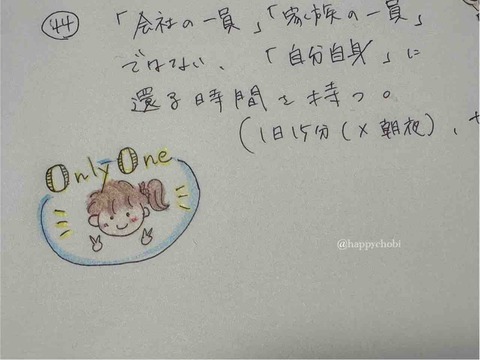 44 「会社の一員」「家族の一員」
ではない、「自分自身」に
還る時間を持つ。
(1日15分(×朝夜)、
Only One
@happychobi